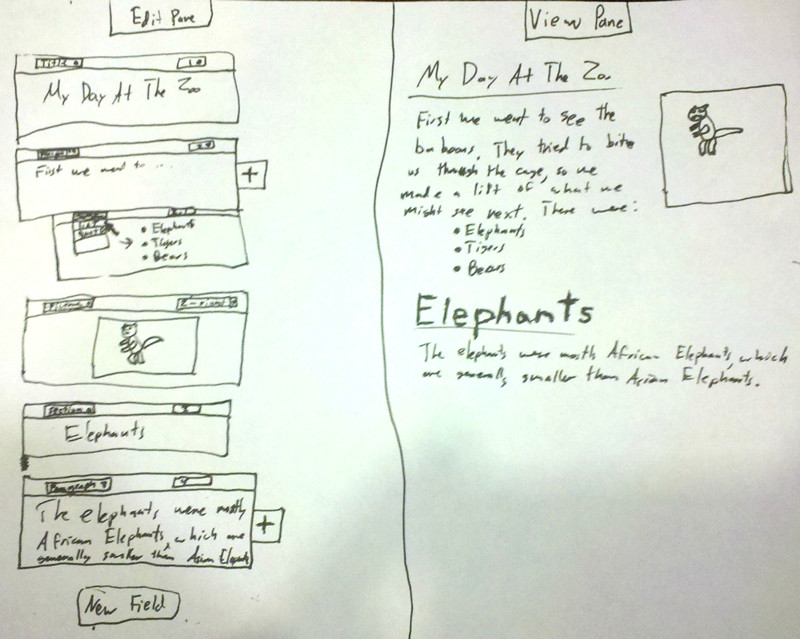 Edit Pane
Title
My Day At The Zoo
Paragraph
First we went to ...
+
List
• Elephants
• Tigers
• Bears
Picture
2-right
Section
3
Elephants
Paragraph
4
The elephants were mostly
African Elephants, which are
generally smaller than Asian Elephants
+
New Field
View Pane
My Day At The Zoo
First we went to see the
baboons. They tried to bite
us through the cage, so we
made a list of what we
might see next. There were:
• Elephants
• Tigers
• Bears
Elephants
The elephants were mostly African Elephants, which
are generally smaller than Asian Elephants.